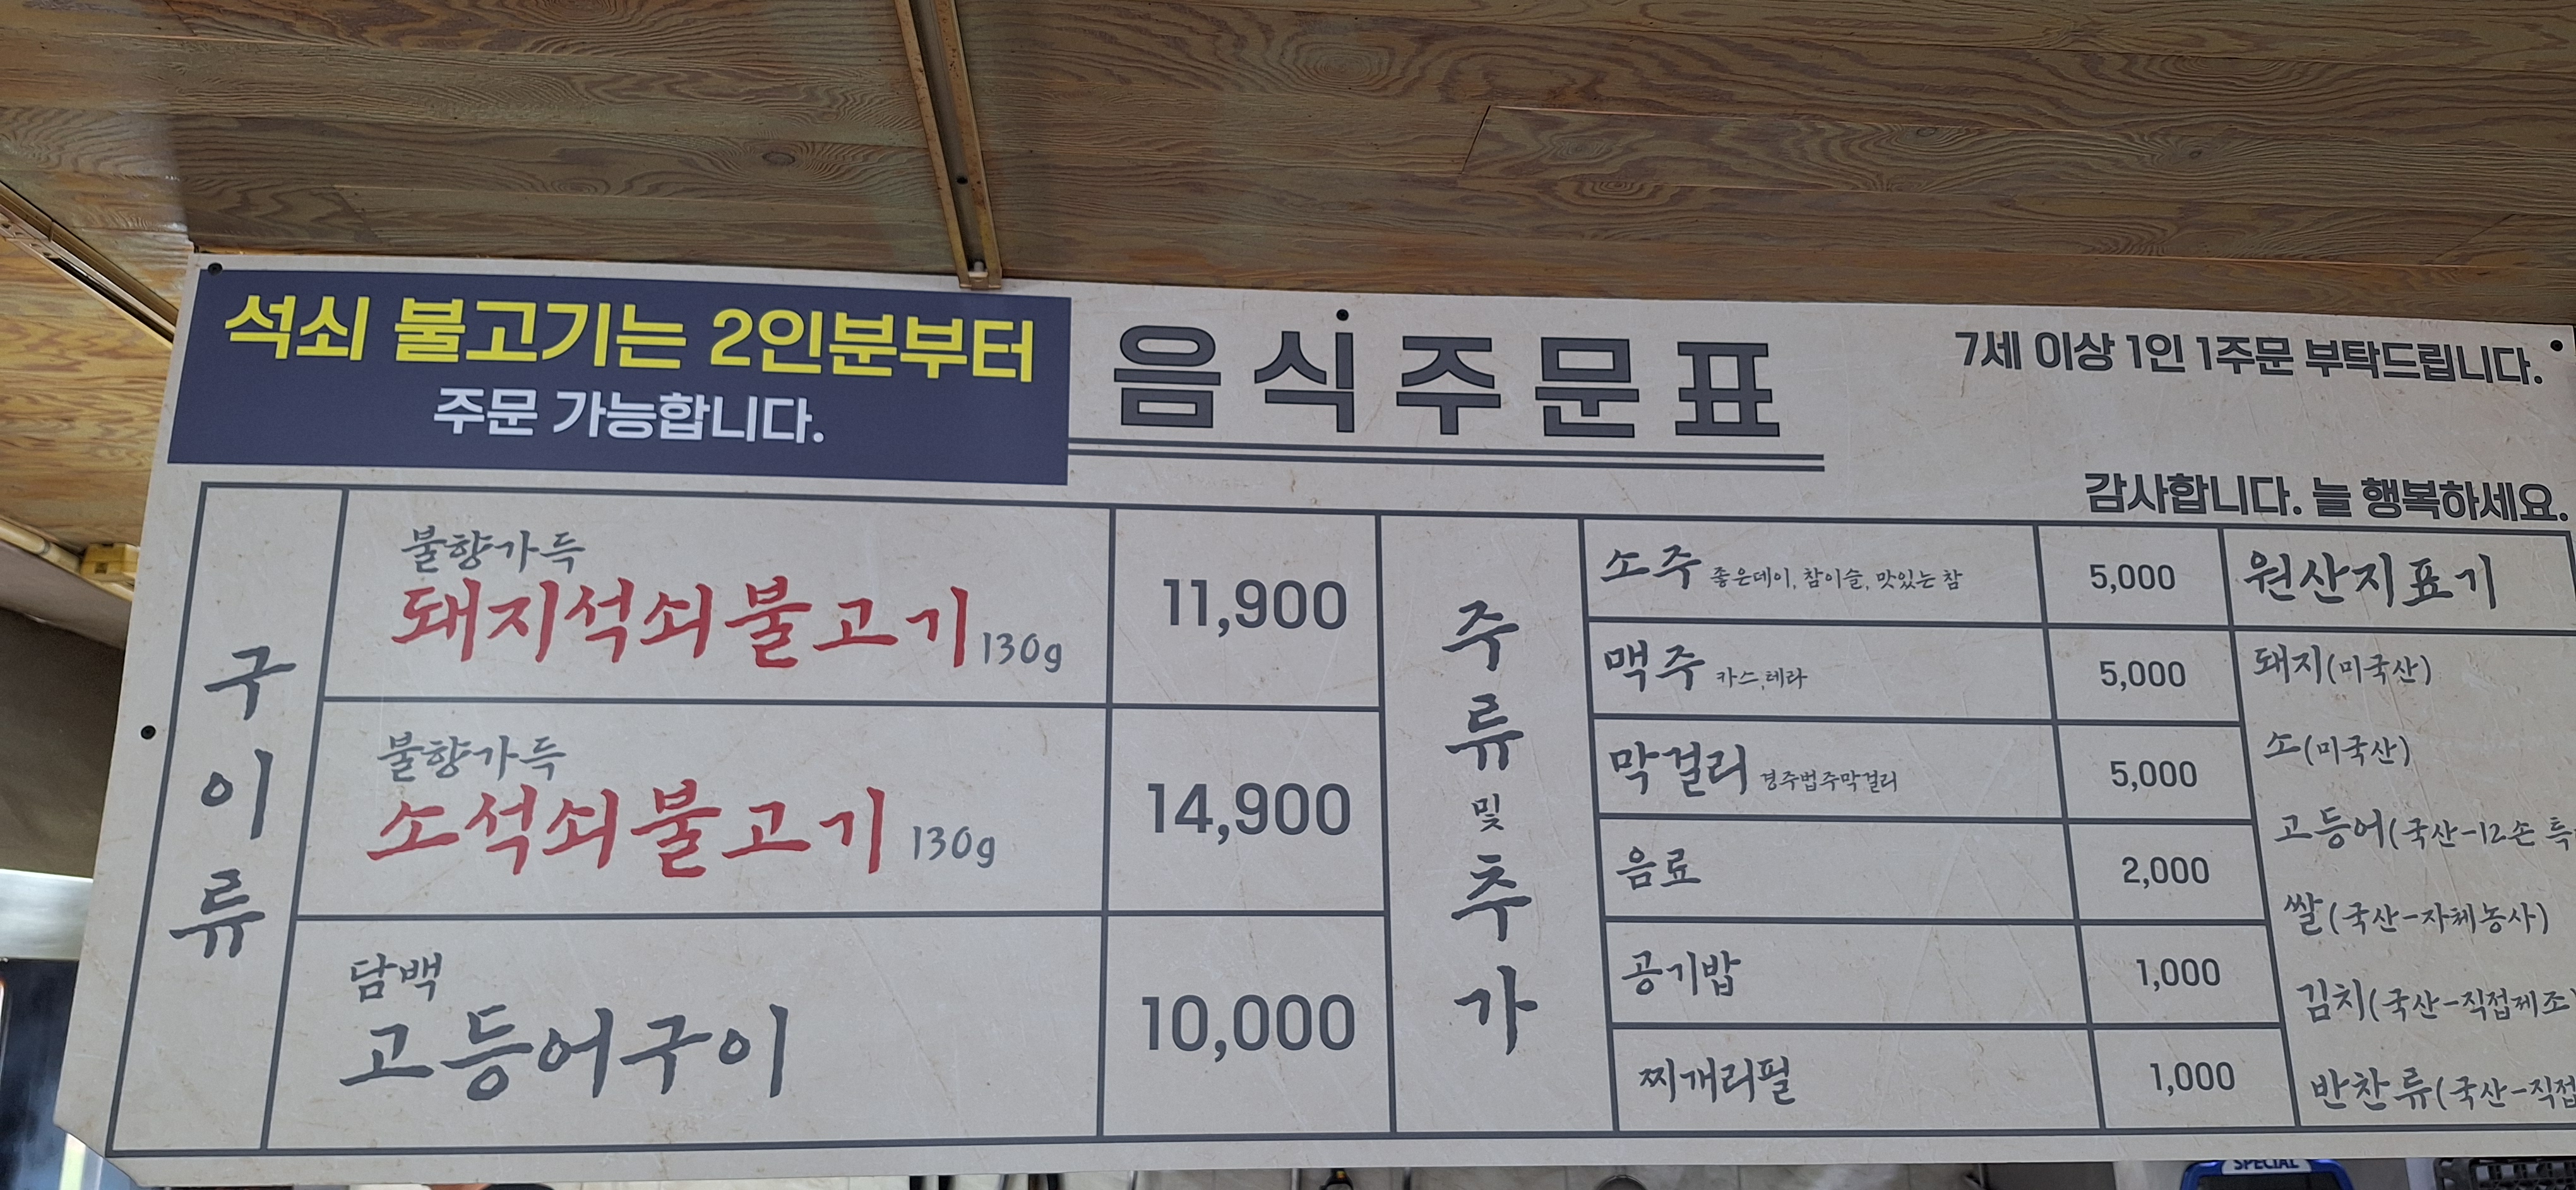 석쇠 불고기는 2인분부터
주문 가능합니다.
음식주문표
7세 이상 1인 1주문 부탁드립니다.
감사합니다. 늘 행복하세요.
구이류
불향가득
돼지석쇠불고기 130g 11,900
불향가득
소석쇠불고기 130g 14,900
담백
고등어구이 10,000
주류 및 추가
소주 좋은데이, 참이슬, 맛있는 참 5,000
맥주 카스,테라 5,000
막걸리 경주법주막걸리 5,000
음료 2,000
공기밥 1,000
찌개리필 1,000
원산지표기
돼지(미국산)
소(미국산)
고등어(국산-12손 특
쌀(국산-자체농사)
김치(국산-직접제조)
반찬류(국산-직접
SPECIAL